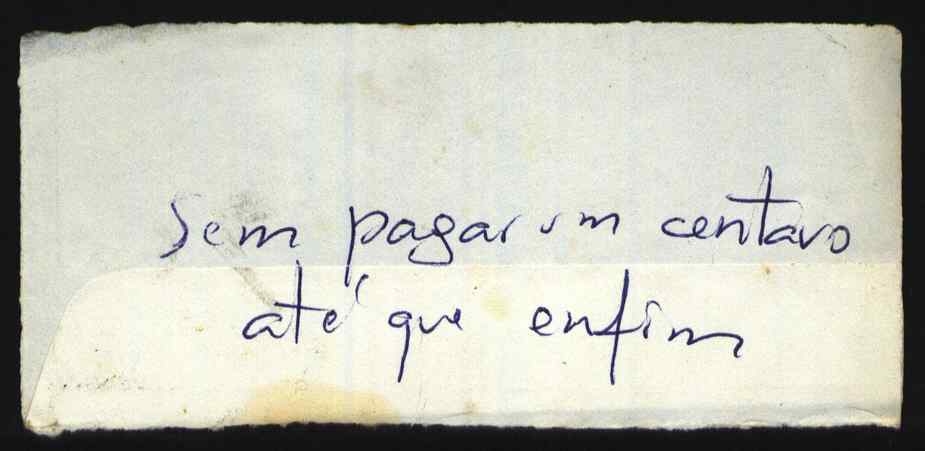 Sem pagar um centavo
até que enfim